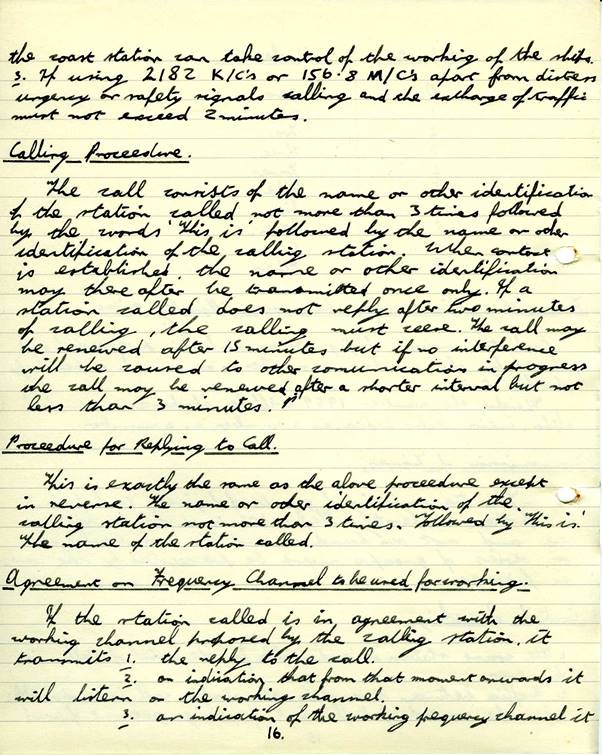 the coast station can take control of the working of the ships.
3. If using 2182 K/C's or 156.8 M/C's apart from distress
urgency or safety signals calling and the exchange of traffic
must not exceed 2 minutes.
Calling Proceedure.
The call consists of the name or other identification
of the station called not more than 3 times followed
by the words 'This is' followed by the name or other
identification of the calling station. When contact
is established, the name or other identification
may there after be transmitted once only. If a
station called does not reply after two minutes
of calling, the calling must cease. The call may
be renewed after 15 minutes but if no interference
will be caused to other comunications in progress
the call may be renewed after a shorter interval but not
less than 3 minutes.
Proceedure for Replying to Call.
This is exactly the same as the above proceedure except
in reverse. The name or other identification of the
calling station not more than 3 times. Followed by 'This is'
The name of the station called.
Agreement on Frequency Channel to be used for working.
If the station called is in agreement with the
working channel proposed by the calling station, it
transmits 1. the reply to the call.
2. an indication that from that moment onwards it
will listern on the working channel.
3. an indication of the working frequency channel it
16.